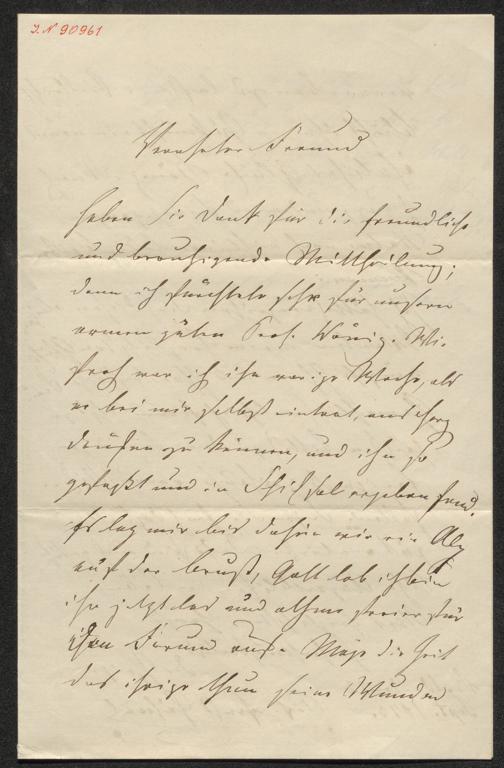 I. N 90961
Verehrter Freund
haben Sie Dank für die freundliche
und beruhigende Mittheilung;
denn ich fürchtete sehr für unsern
armen guten Prof. König. Wie
froh war ich ihn vorige Woche, als
er bei mir selbst eintrat,
zu können, und ihn so
gefaßt und in Schicksal ergeben fand.
Es lag mir bis dahin wie ein Alp
auf der Brust, Gott lob ich bin
ihn jetzt los und athme freier für
den Freund auf. Möge die Zeit
das ihrige thun seine Wunden